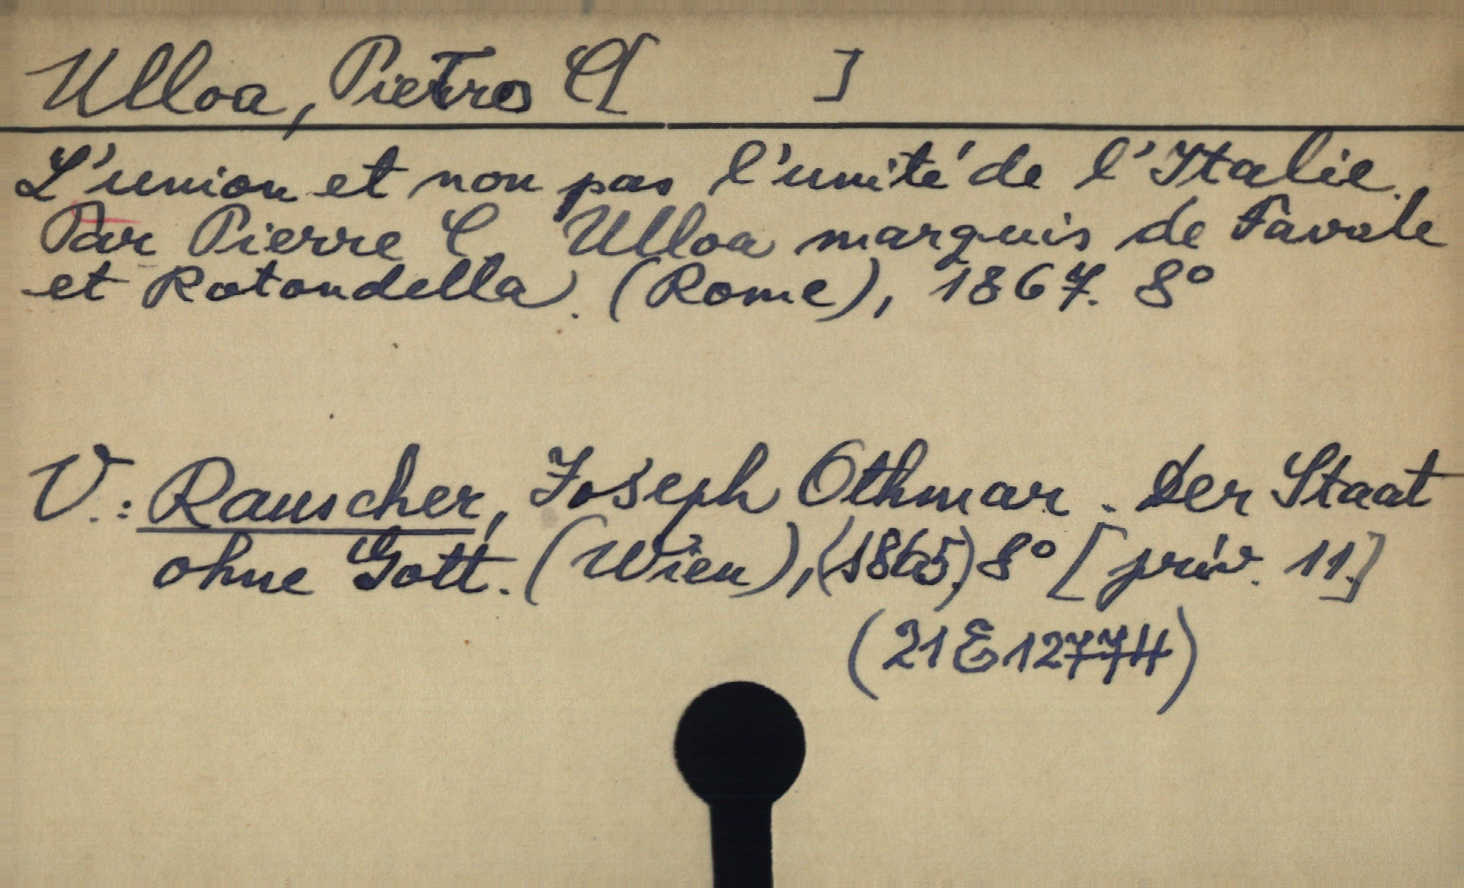 Ulloa, Pietro C[ ]
L'union et non pas l'unité de l'Italie.
Par Pierre C. Ulloa marquis de Favale
et Rotondella. (Rome), 1867. 8°
V.: Rauscher, Joseph Othmar. Der Staat
ohne Gott. (Wien), (1865.) 8° [priv. 11.]
(21 E 12774)